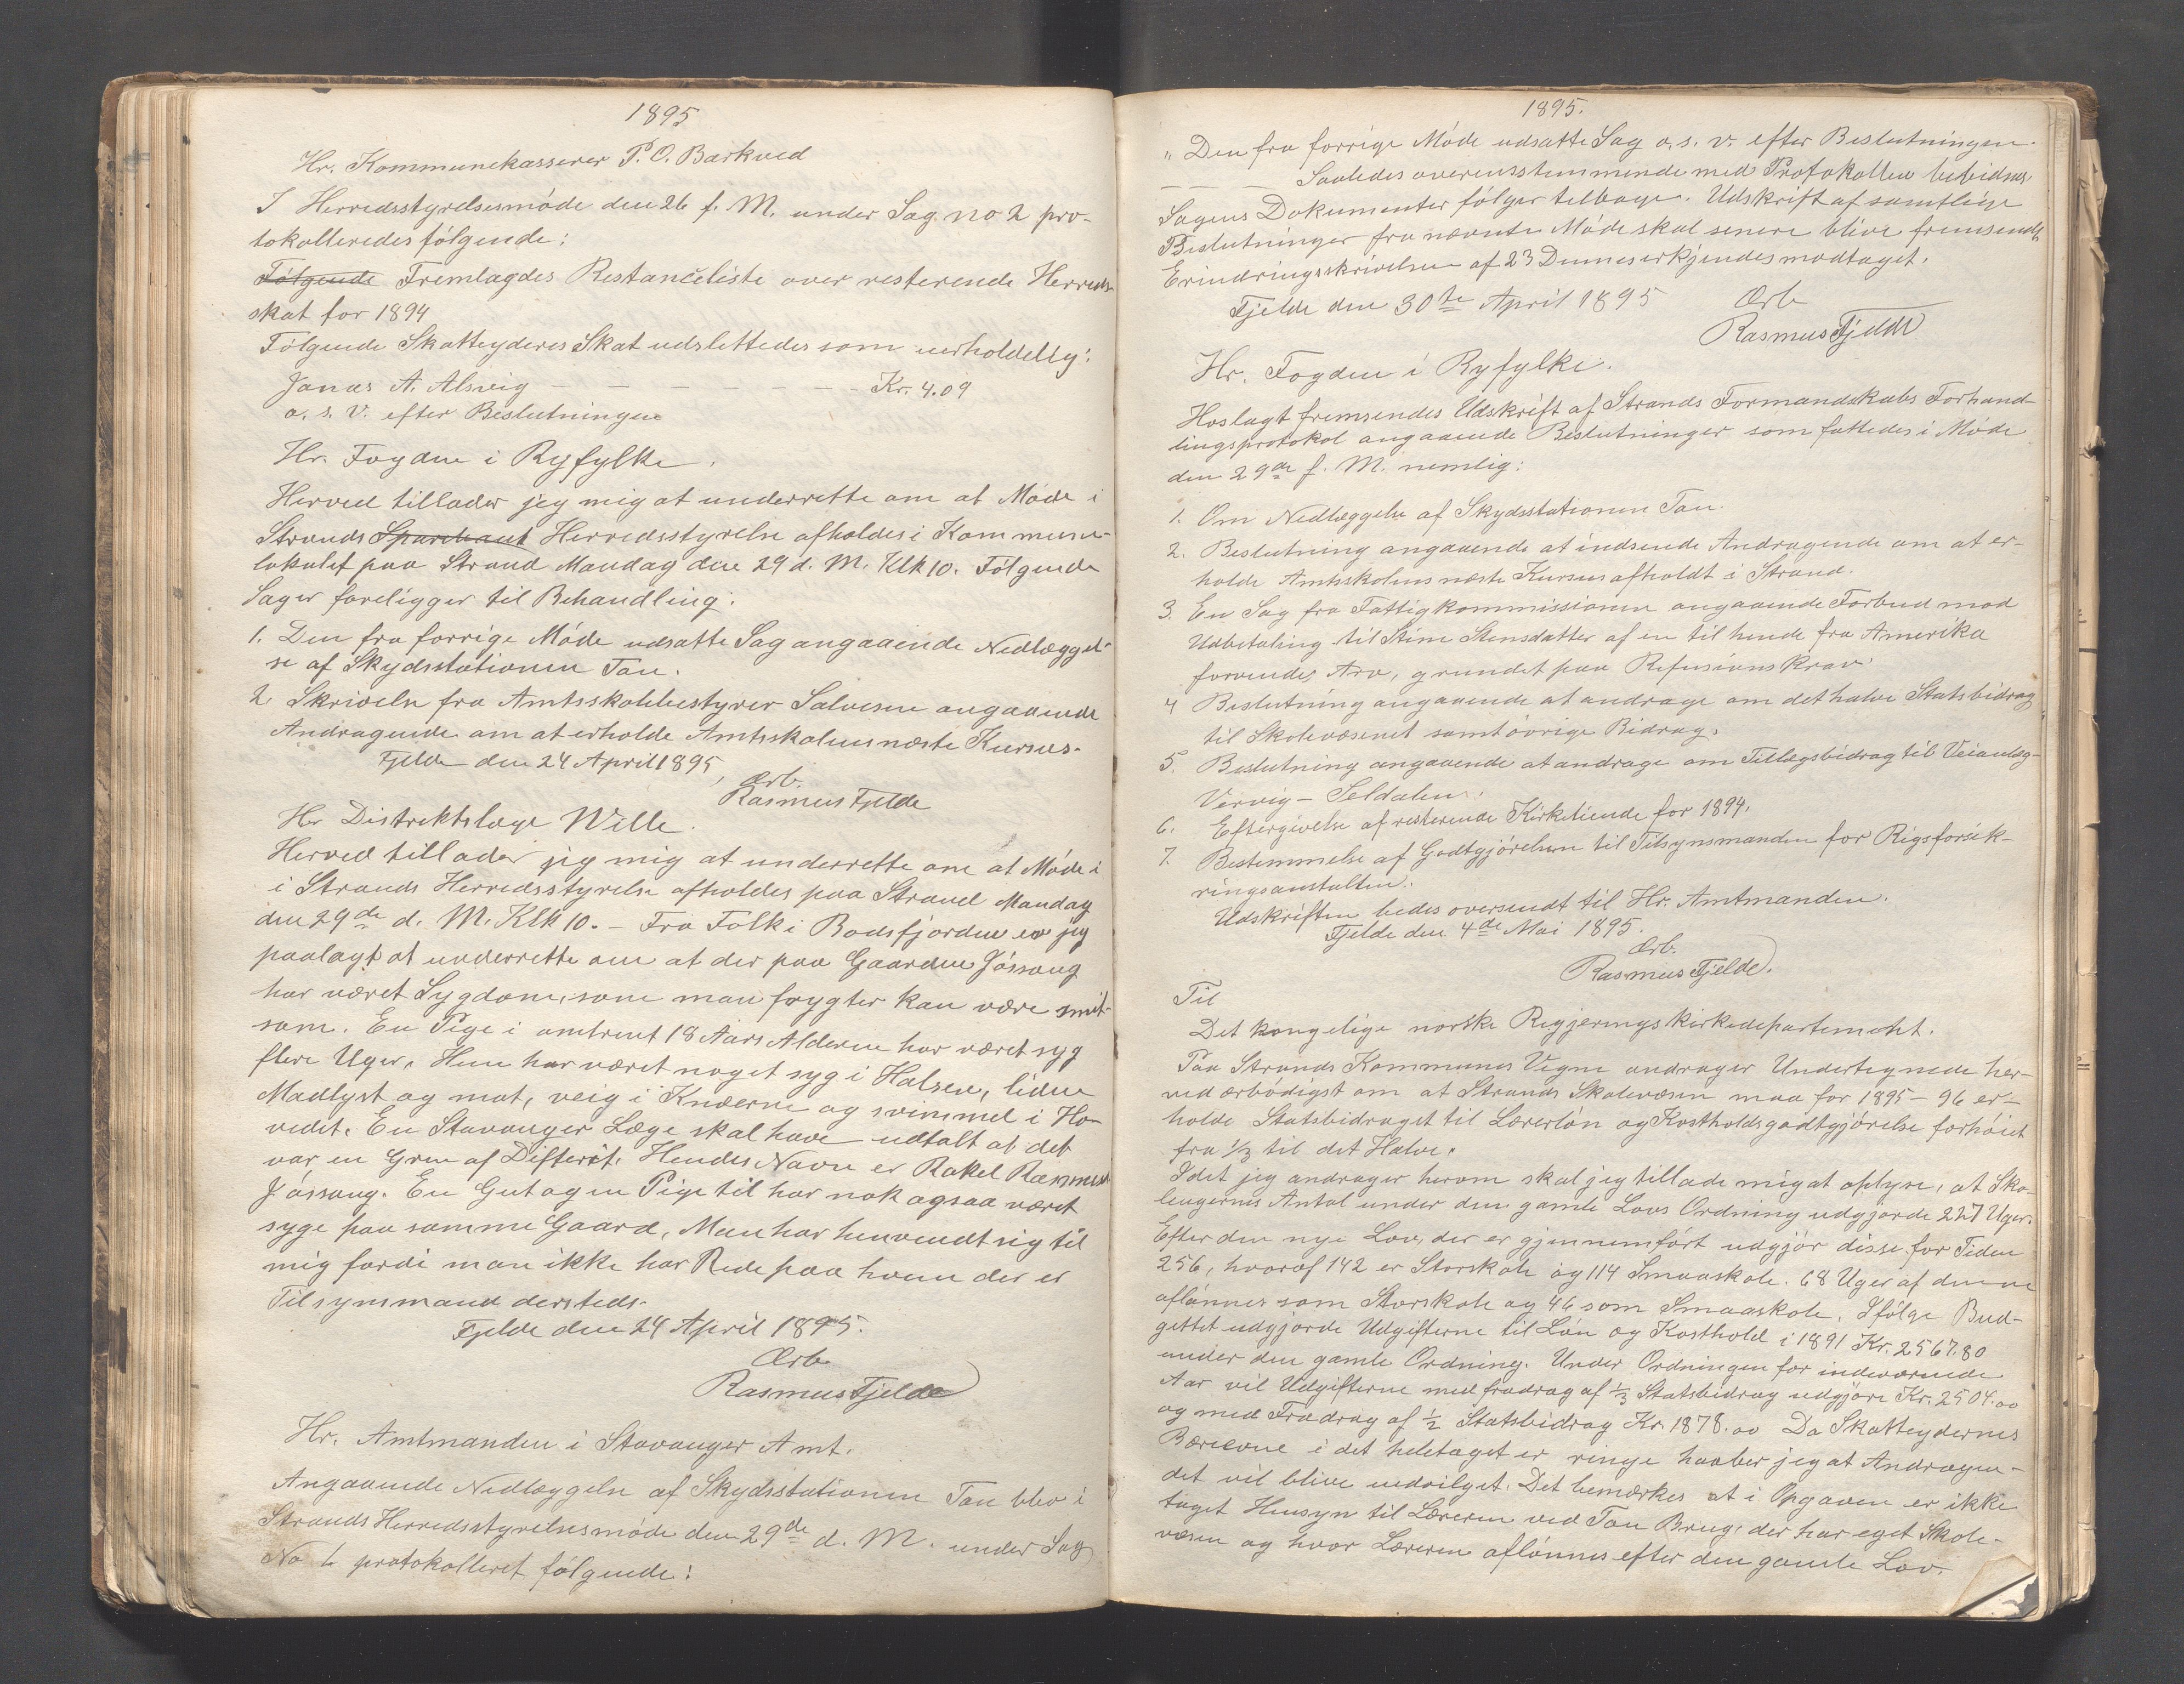 1895
Hr. Kommunekasserer P. O. Barkved
I Herredsstyrelsesmöde den 26 f. M. under Sag no 2 pro-
tokolleredes fölgende:
Fölgende Fremlagdes Restanceliste over resterende Herreds-
skat for 1894
Fölgende Skatteyderes Skat udslettedes som uerholdelig:
Jonas A. Alsvig — — — — — — — Kr. 4.09
o. s. v. efter Beslutningen
Hr. Fogden i Ryfylke.
Herved tillader jeg mig at underrette om at Möde i
Strands Sparebank Herredsstyrelse afholdes i Kommune-
lokalet paa Strand Mandag den 29 d. M. Klk 10. Fölgende
Sager foreligger til Behandling:
1. Den fra forrige Möde udsatte Sag angaaende Nedlæggel-
se af Skydsstationen Tau.
2 Skrivelse fra Amtsskolebestyrer Salvesen angaaende
Andragende om at erholde Amtsskolens næste Kursus.
Fjelde den 24 April 1895,
Ærb.
Rasmus Fjelde
Hr Distriktslæge Wille.
Herved tillader jeg mig at underrette om at Möde i
i Strands Herredsstyrelse afholdes paa Strand Mandag
den 29de d. M. Klk 10. – Fra Folk i Bodsfjorden er jeg
paalagt at underrette om at der paa Gaarden Jössang
har været Sygdom, som man frygter kan være smit-
som. En Pige i omtrent 18 Aars Alderen har været syg
flere Uger. Hun har været noget syg i Halsen, liden
Madlyst og mat, veig i Knæerne og svimmel i Ho-
vedet. En Stavanger Læge skal have udtalt at det
var en Gren af Difterit. Hendes Navn er Rakel Rasmusd
Jössang. En Gut og en Pige til har nok ogsaa været
syge paa samme Gaard, Man har henvendt sig til
mig fordi man ikke har Rede paa hvem der er
Tilsynsmand dersteds.
Fjelde den 24 April 1895.
Ærb
Rasmus Fjelde
Hr. Amtmanden i Stavanger Amt.
Angaaende Nedlæggelse af Skydsstationen Tau blev i
Strands Herredsstyrelsesmöde den 29de d. M. under Sag
No 1 protokolleret fölgende:
1895.
„ Den fra forrige Möde udsatte Sag o. s. v. efter Beslutningen.
— — — Saaledes overensstemmende med Protokollen bevidnes
Sagens Dokumenter fölger tilbage. Udskrift af samtlige
Beslutninger fra nævnte Möde skal senere blive fremsendt,
Erindringsskrivelsen af 23 Dennes erkjendes modtaget.
Fjelde den 30te April 1895
Ærb
Rasmus Fjelde
Hr. Fogden i Ryfylke.
Hoslagt fremsendes Udskrift af Strands Formandskabs Forhand-
lingsprotokol angaaende Beslutninger som fattedes i Möde
den 29de f. M. nemlig:
1. Om Nedlæggelse af Skydsstationen Tau.
2. Beslutning angaaende at indsende Andragende om at er-
holde Amtsskolens næste Kursus afholdt i Strand.
3. En Sag fra Fattigkommissionen angaaende Forbud mod
Udbetaling til Stine Stensdatter af en til hende fra Amerika
forvendes Arv, grundet paa Refusionskrav.
4 Beslutning angaaende at andrage om det halve Statsbidrag
til Skolevæsenet samt övrige Bidrag.
5. Beslutning angaaende at andrage om Tillægsbidrag til Veianlæg-
Vervig – Seldalen.
6. Eftergivelse af resterende Kirketiende for 1894.
7. Bestemmelse af Godtgjörelsen til Tilsynsmanden for Rigsforsik-
ringsanstalten.
Udskriften bedes oversendt til Hr. Amtmanden.
Fjelde den 4de Mai 1895.
Ærb.
Rasmus Fjelde.
Til
Det kongelige norske Regjerings kirkedepartement.
Paa Strands Kommunes Vegne andrager Undertegnede her-
ved ærbödigst om at Strands Skolevæsen maa for 1895 – 96 er-
holde Statsbidraget til Lærerlön og Kostholdsgodtgjörelse forhöiet
fra 1/3 til det Halve.
Idet jeg andrager herom skal jeg tillade mig at oplyse, at Sko-
leugernes Antal under den gamle Lovs Ordning udgjorde 227 Uger.
Efter den nye Lov, der er gjennemfört udgjör disse for Tiden
256, hvoraf 142 er Storskole og 114 Smaaskole. 68 Uger af denne
aflönnes som Storskole og 46 som Smaaskole. Ifölge Bud-
gettet udgjorde Udgifterne til Lön og Kosthold i 1891 Kr. 2567.80
under den gamle Ordning. Under Ordningen for indeværende
Aar vil Udgifterne med fradrag af 1/3 Statsbidrag udgjöre Kr. 2504.00
og med Fradrag af 1/2 Statsbidrag Kr. 1878.00 Da Skatteydernes
Bæreevne i det heletaget er ringe haaber jeg at Andragen-
det vil blive indvilget. Det bemærkes at i Opgaven er ikke
taget Hensyn til Læreren ved Tou Brug, der har eget Skole-
væsen og hvor Læreren aflönnes efter den gamle Lov.